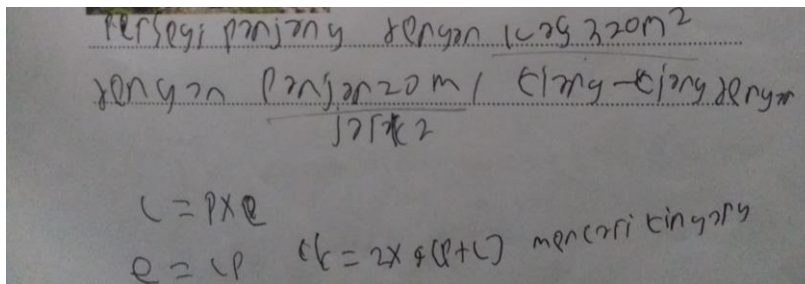 Persegi panjang dengan luas 320m²
dengan panjan 20 m, tiang-tiang dengan
jarak 2
L = P x l
l = LP kk = 2x &(P+L) mencari tingang